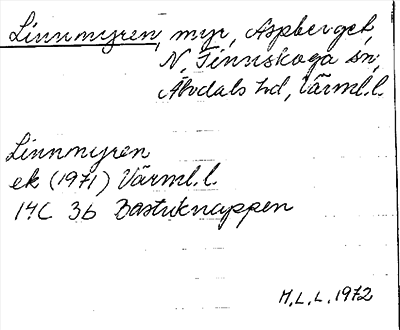 Linnmyren, myr, Aspberget,
N. Finnskoga sn,
Älvdals hd, Värml. l.
Linnmyren
ek (1971) Värml. l.
17C 3b Bastuknappen
M. L. L. 1972